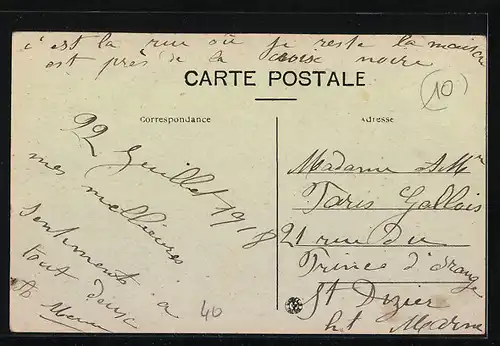 c'est la rue où je reste la maison
est près de la croix noire
CARTE POSTALE
10
Correspondance
Adresse
22 Juillet 1918
mes meilleures
sentiments a
tout deux
40
Madame & Mr
Paris Gallois
21 rue Du
Prince d'orange
St Dizier
ht Marne